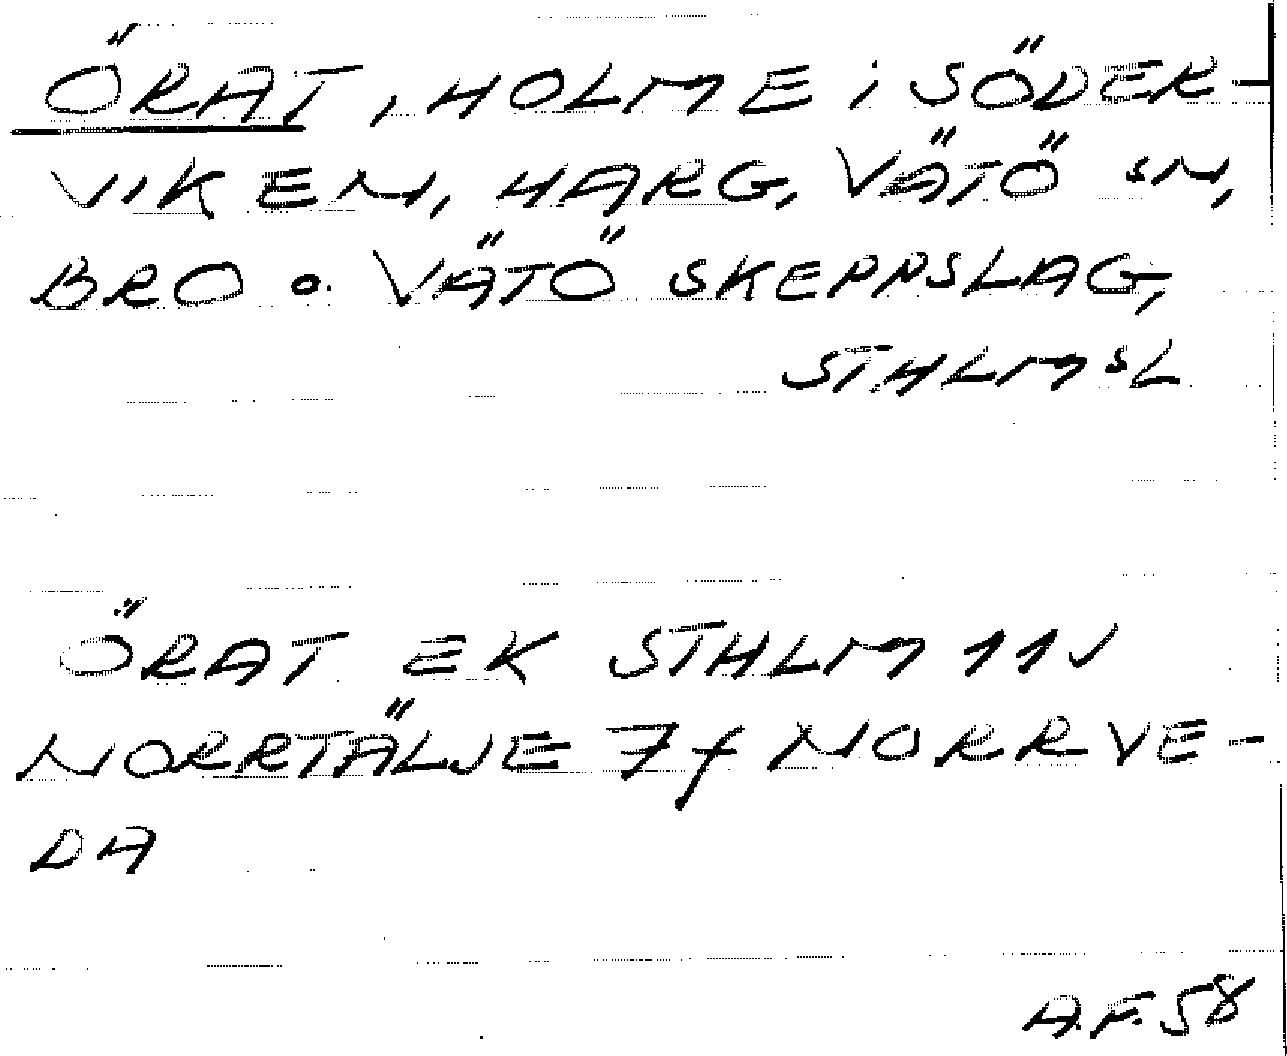 ÖRAT, HOLME i SÖDER-
VIKEN, HARG, VÄTÖ SN,
BRO o. VÄTÖ SKEPPSLAG,
STHLMSL
ÖRAT EK STHLM 11 V
NORRTÄLJE 7f NORRVE-
DA
A.F. 58